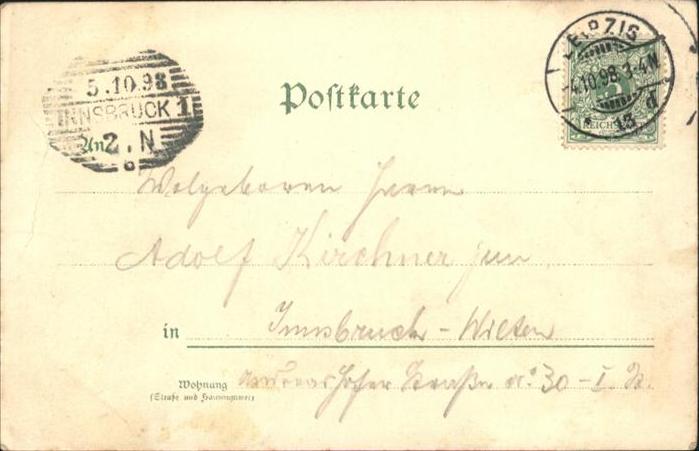 LEIPZIG
-4.10.98. 3-4 N
* 13 d
5.10.98
INNSBRUCK 1
2. N
Postkarte
An
Wolgeboren Herrn
Adolf Kirchner jun
in Innsbruck - Wilten
Wohnung Andreas Hofer Straße No 30 - I. St.
(Straße und Hausnummer)